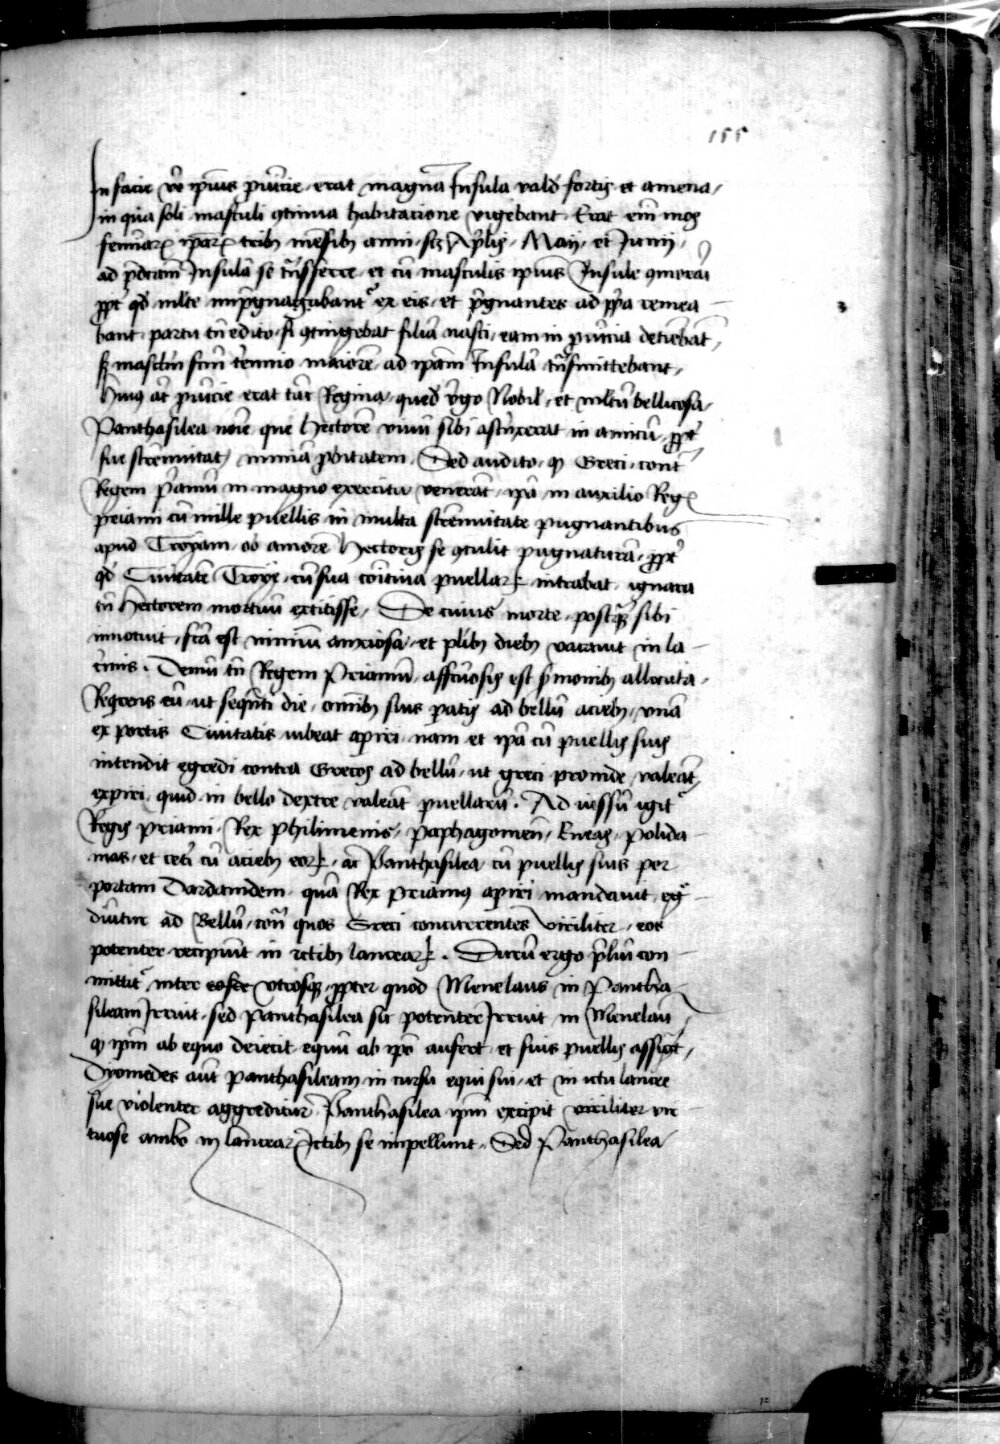 155
In facie vo ipius puicie · erat magna Insula vald fortis et amena /
in qua soli masculi gtinua habitacione vigebant · Erat eni mos
feminar ipar tribz mesibz anni · scz Aplis · Maij · et Iunij /
ad pdcam Insula se tnsferre · et cu masculis ipius Insule
ppt qd mlte impgnagabant ex eis · et pgnantes ad ppa remea
bant · partu tn edito · si gtingebat filia nasci · eam in puicia detinebat /
sz masclm fcm tennio maiore · ad ipam Insula tnsmittebant /
Huius at puicie erat tuc Regina · qued vgo Nobil · et mltu bellicosa /
Panthasilea noie que Hectore viuu sibi astrixerat in amicu · ppt
sue strennuitat nimia pbitatem · Sed audito · q Greci · cont
Regem Pamu in magno exercitu venerat · ipa in auxilio Reg
priami cu mille puellis in multa strennuitate pugnantibus
apud Troyam · ob amore Hectoris se gtulit pugnatura · ppt
qd Ciuitate Troye · cu sua comitiua puellar intrabat · ignara
tn Hectorem mortuu extitisse / De cuius morte · postqz sibi
innotuit · fca est nimiu anxiosa · et plibz diebz vacauit in la
crimis · Demu tn Regem Priamu · affcuosis est smonibz allocuta /
Regrens eu · ut sequnti die · omibz suis patis ad bellu aciebz · vna
ex portis Ciuitatis iubeat apiri · nam et ipa cu puellis suis
intendit egredi contra Grecos ad bellu · ut greci proinde valeat
expiri · quid in bello dextre valeat puellaru · Ad iussu igit
Regis priami · Rex philimenis · paphagomen · Eneas · polida
mas · et ceti cu aciebz eor · ac Panthasilea cu puellis suis per
portam Dardanidem · qua Rex priamus apiri mandauit · eg
diuntur ad Bellu · cont quos Greci concurrentes viriliter · eos
potenter recipiunt in ictibz lancear · Duru ergo pliu con
mittit inter eosde vtrosqz · ppter quod Menelaus in Pantha
sileam Irruit · sed panthasilea sic potenter Irruit in Menelau /
q ipm ab equo deiecit equu ab ipo aufert · et suis puellis assigt /
Dyomedes aut panthasileam in cursu equi sui · et in ictu lancee
sue violenter aggreditur · Panthasilea ipm excipit viriliter vir
tuose ambo in lancear Ictibz se impellunt · Sed Panthasilea